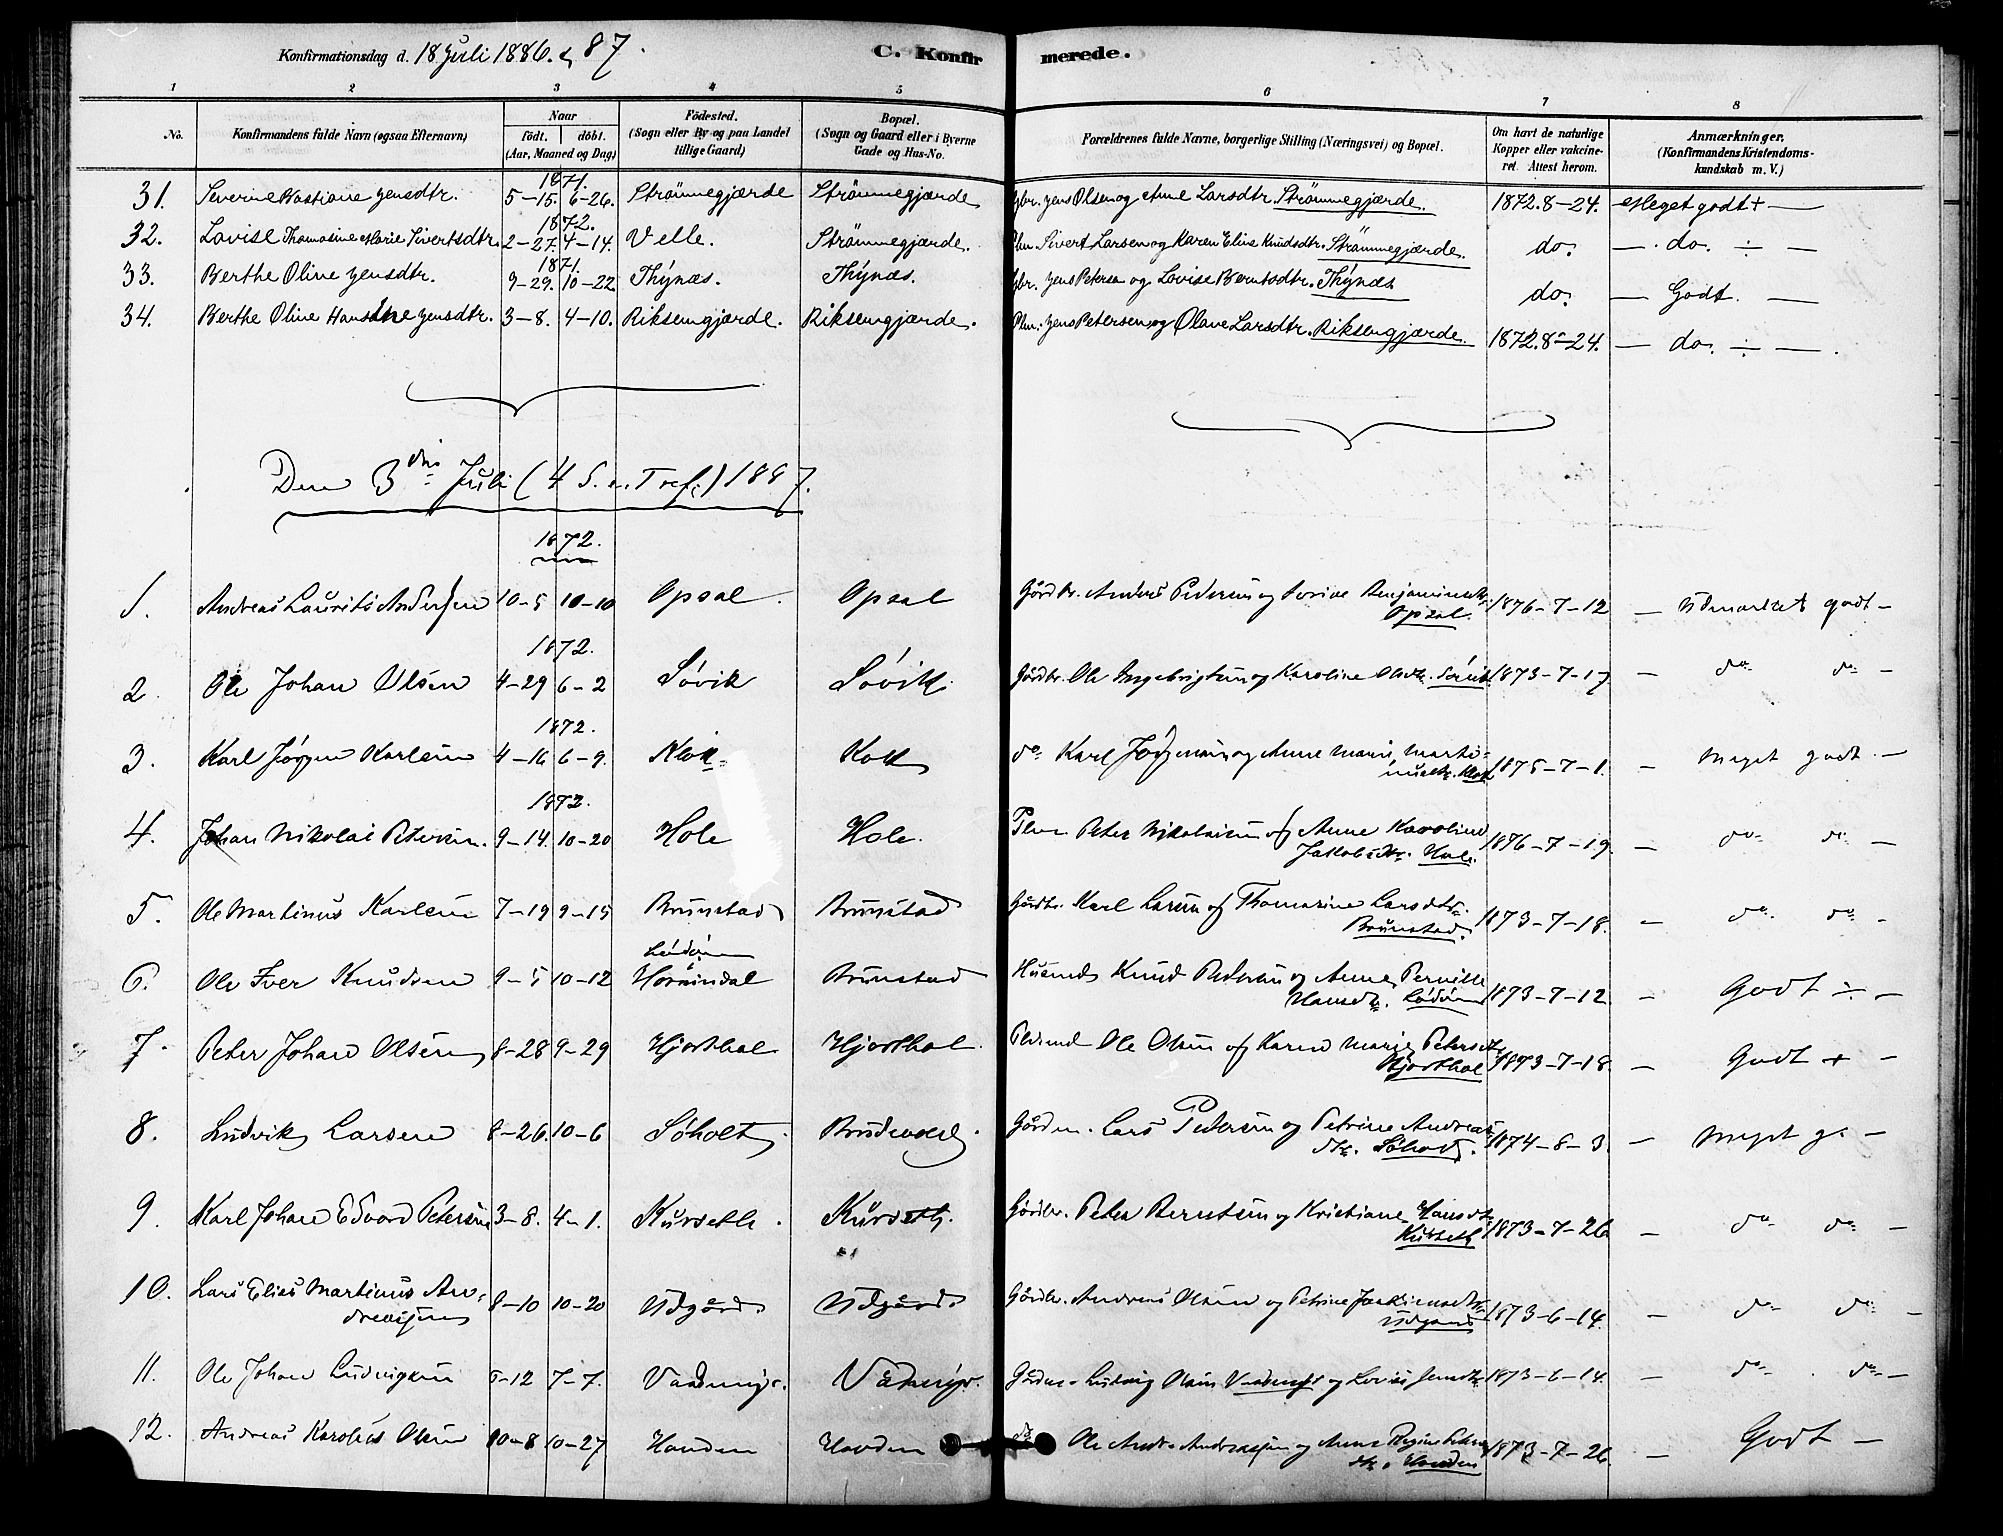 Konfirmationsdag d. 18 Juli 1886. & 87.
C. Konfirmerede.
1 2 3 4 5 6 7 8
No.
Konfirmandens fulde Navn (ogsaa Efternavn)
Naar
födt. döbt.
(Aar, Maaned og Dag)
Födested.
(Sogn eller By og paa Landet
tillige Gaard)
Bopæl.
(Sogn og Gaard eller i Byerne
Gade og Hus-No.
Forældrenes fulde Navne, borgerlige Stilling (Næringsvei) og Bopæl.
Om havt de naturlige
Kopper eller vakcine-
ret. Attest herom.
Anmærkninger.
(Konfirmandens Kristendoms-
kundskab m. V.)
1871.
31. Severine Bastiane Jensdtr. 5-15. 6-26. Strömmegjærde Strömmegjærde Gbr. Jens Olsen og Anne Larsdtr. Strömmegjærde. 1872.8-24. Meget godt + —
1872.
32. Lovise Thomasine Marie Sivertsdtr. 2-27. 4-14. Velle. Strömmegjærde. Plm. Sivert Larsen og Karen Eline Knudsdtr. Strömmegjærde. do. — do. ÷ —
1871.
33. Berthe Oline Jensdtr. 9-29. 10-22. Thÿnæs. Thÿnæs. Gbr. Jens Petersen og Lovise Berntsdtr. Thÿnæs do. — Godt. —
34. Berthe Oline Hansine Jensdtr. 3-8. 4-10. Riksemgjærde. Riksemgjærde. Plm. Jens Petersen og Olave Larsdtr. Riksemgjærde. 1872.8-24. — do. ÷ —.
Den 3die Juli (4 S. e. Tref.) 1887.
1872.
1. Andreas Laurits Andersen 10-5 10-10 Opsal. Opsal Gårdbr. Anders Pedersen og Sorine Benjaminsdtr. 1876-7-12 — Udmærket godt —
Opsal.
1872.
2. Ole Johan Olsen 4-29 6-2 Søvik Søvik. Gårdbr. Ole Ingebrigtsen og Karoline Olsdtr. Søvik 1873-7-17 — do do —
1872.
3. Karl Jørgen Karlsen 4-16 6-9. Klok Kok do Karl Jørgensen og Anne Marie Marti- 1875-7-1. — Meget godt. —
1872.
4. Johan Nikolai Petersen. 9-14. 10-20 Hole Hole. Peter Nikolaisen og Anne Karoline 1876-7-19. — do do —
Jakobsdtr. Hole.
5. Ole Martinus Karlsen 7-19 9-15 Brunstad Brunstad Gårdbr. Karl Larsen og Thomasine Larsdtr. 1873-7-18. — do. do —
Brunstad.
6. Ole Iver Knudsen 9-5 10-12 Hornindal Brunstad Husmd. Knud Pedersen og Anne Pernille 1873-7-12. — Godt ÷ —
Hansdtr.
7. Peter Johan Olsen 8-28 9-29 Hjorthol Hjorthol. Ole Olsen og Karen Marie Petersdtr 1873-7-18. — Godt + —
Hjorthol
8. Ludvik Larsen 8-26. 10-6 Søholt. Gårdm. Lars Pedersen og Petrine Andreas- 1874-8-3. — Meget g. —
dtr. Søholt.
9. Karl Johan Edvard Petersen 3-8. 4-1. Kurseth. Kurseth. Gårdbr. Peter Berntsen og Kristiane Hansdtr 1873-7-26 — do do —
Kurseth
10. Lars Elias Martinus An- 8-10 10-20 Udgård. Udgård. Gårdbr. Andreas Olsen og Petrine Joakimsdtr 1873-6-14. — do do —
dreassen Udgård
11. Ole Johan Ludvigsen 5-12 7-7. Vadmyr. Vadmyr. Gårdm. Ludvig Olsen Vadmyr og Lovise Jensdtr 1873-6-14. — do. do —
12. Andreas Karolus Olsen 10-8 10-27 Havden Havden do Ole Andr. Andreassen og Anne Regine Peters- 1873-7-26. — Godt —
dtr. Havden